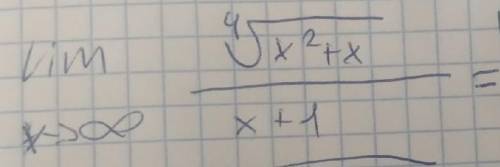 lim x→∞ ∜(x²+x) / (x+1) =